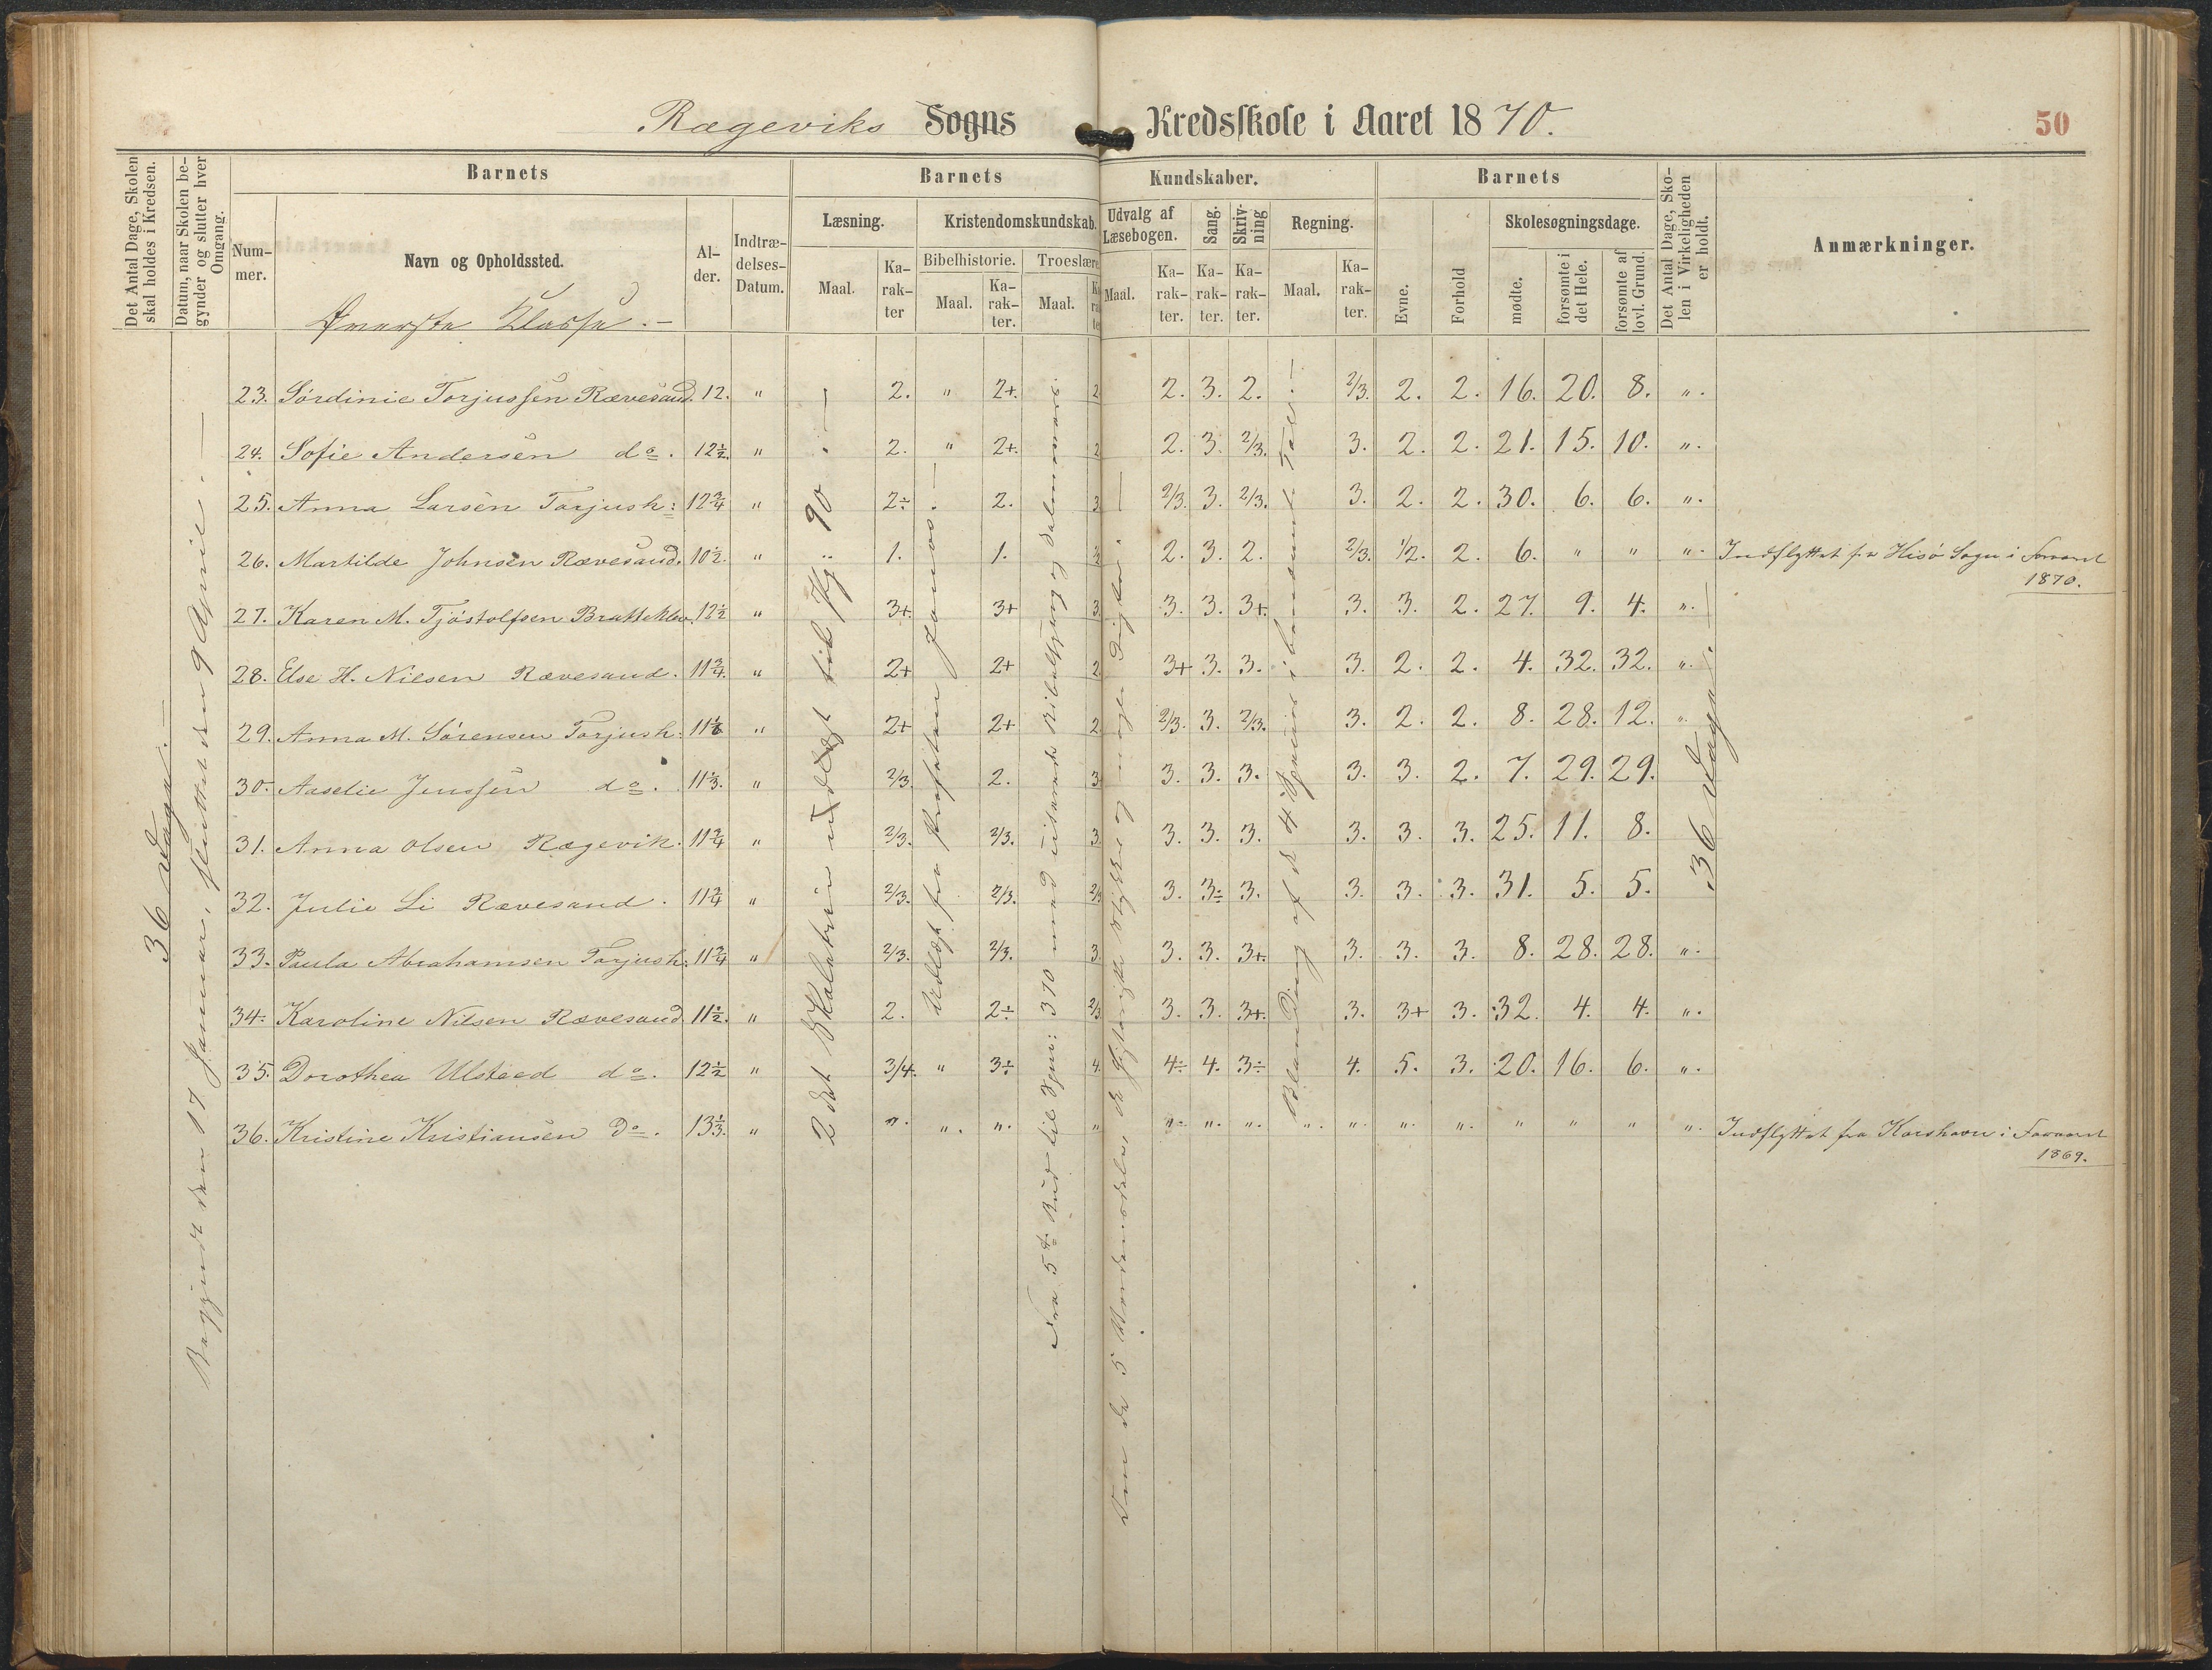 Rægeviks Sogns Kredsskole i Aaret 1870.
50
Det Antal Dage, Skolen skal holdes i Kredsen.
Datum, naar Skolen begynder og slutter hver Omgang.
Barnets
Num-mer.
Navn og Opholdssted.
Øverste Klasse.-
Al-der.
Indtræ-delses-Datum.
Barnets
Kundskaber.
Læsning.
Maal.
Ka-rak-ter
Kristendomskundskab.
Bibelhistorie.
Maal.
Ka-rak-ter.
Troeslære
Maal.
Udvalg af Læsebogen.
Maal.
Ka-rak-ter.
Sang.
Ka-rak-ter.
Skriv-ning
Ka-rak-ter.
Regning.
Maal.
Ka-rak-ter.
Barnets
Evne.
Forhold
Skolesøgningsdage.
mødte.
forsømte i det Hele.
forsømte af lovl. Grund.
Det Antal Dage, Sko-len i Virkeligheden er holdt.
Anmærkninger.
36 Dage.
Begyndt den 17 Januar, sluttet den 9 April.
2det Skoletrin udlagt til Pg 90
Udlagt fra Profeten Jonas.
Fra 5te Bud til Spm: 370 med
Blanding af de 4 Spesies i benævnt Tal.
36 Dage.
23. Sørdinie Torjussen Rævesand. 12. " 2. " 2+. 2 2. 3. 2. 2/3. 2. 2. 16. 20. 8. ".
24. Sofie Andersen do. 12½. " 2. " 2+. 2 2. 3. 2/3. 3. 2. 2. 21. 15. 10. ".
25. Anna Larsen Torjush: 12¾ " 2÷ 2. 3 2/3. 3. 2/3. 3. 2. 2. 30. 6. 6. ".
26. Martilde Johnsen Rævesand. 10½. " 1. 1. 2. 3. 2. 2/3. 1/2. 2. 6. " " ". Indflyttet fra Hisø Sogn i
1870.
27. Karen M. Tjøstolfsen Bratteklev. 12½ " 3+. 3+ 3. 3. 3. 3+. 3. 3. 2. 27. 9. 4. ".
28. Else H. Nilsen Rævesand. 11¾. " 2+ 2+ 2 3+ 3. 3. 3. 2. 2. 4. 32. 32. ".
29. Anna M. Sørensen Torjush: " 2+ 2+ 2 2/3. 3. 2/3. 3. 2. 2. 8. 28. 12. ".
30. Aaselie Jenssen do. 11⅓. " 2/3. 2. 3. 3. 3. 3. 3. 3. 2. 7. 29. 29.
31. Anna Olsen Rægevik. 11¾ " 2/3. 2/3. 3. 3. 3. 3. 3. 3. 3. 25. 11. 8.
32. Julie Li Rævesand. 11¾ " 2/3. 2/3. 2/3 3. 3÷ 3. 3. 3. 3. 31. 5. 5.
33. Paula Abrahamsen Torjush: 11¾ " 2/3. 2/3. 3. 3. 3. 3+. 3. 3. 3. 8. 28. 28. ".
34. Karoline Nilsen Rævesand 11½. " 2. 2÷ 2/3 3. 3. 3+. 3. 3+ 3. 32. 4. 4. ".
35. Dorothea Ulsteed do. 12½ " 3/4. " 3÷ 4. 4÷ 4. 3÷ 4. 5. 3. 20. 16. 6. ".
36. Kristine Kristiansen Do. 13⅓. " ". ". ". " ". ". ". ". ". ". ". " " " ". Indflyttet fra Korshavn i
1869.